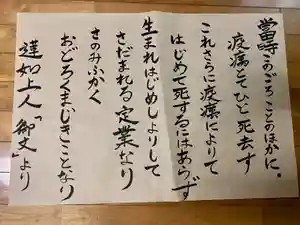 當時このごろことのほかに。
疫癘とてひと死去す
これさらに疫癘によりて
はじめて死するにはあらず
生まれはじめしよりして
さだまれる定業なり
さのみふかく
おどろくまじきことなり
蓮如上人「御文」より